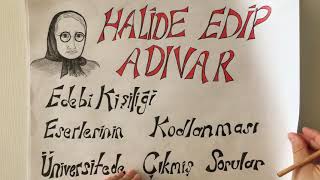 HALİDE EDİP
ADIVAR
Edebi Kişiliği
Eserlerinin Kodlanması
Üniversitede Çıkmış Sorular